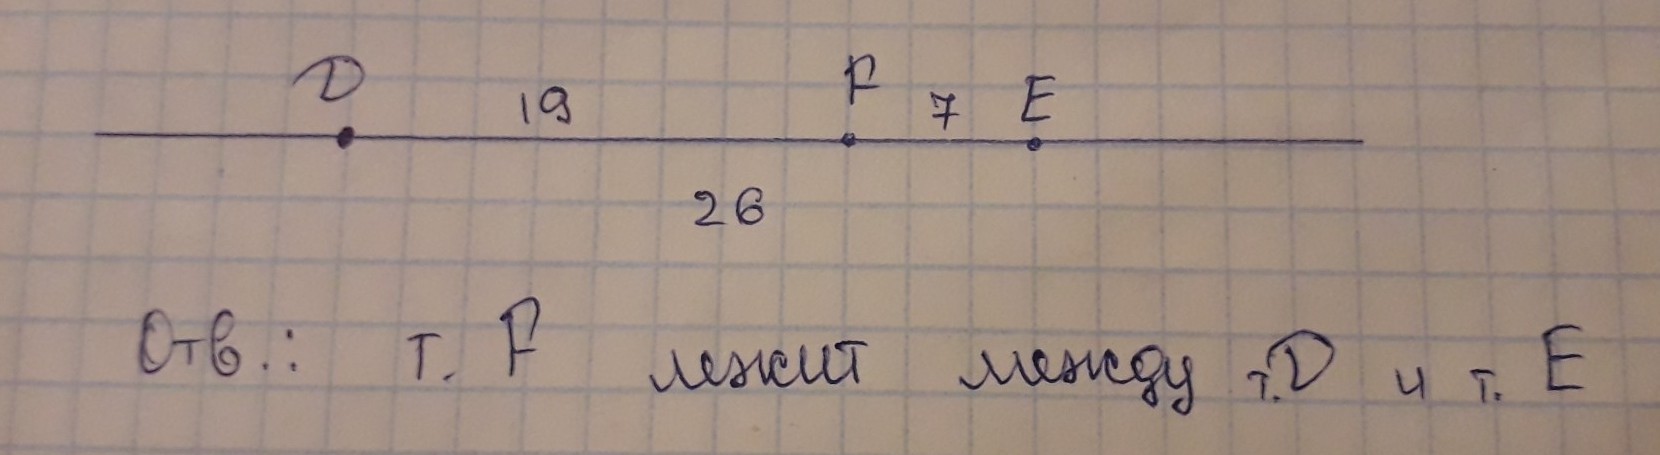 D 19 F 7 E
26
Отв.: т. F лежит между т. D и т. E